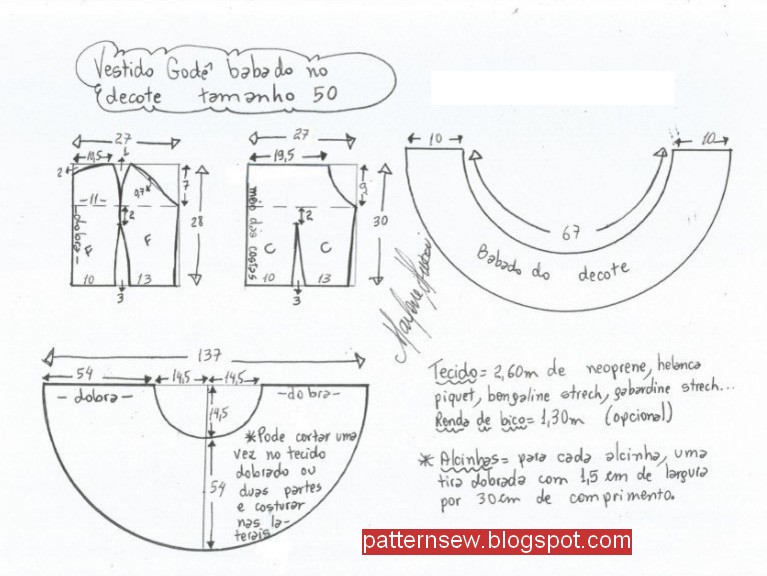 Vestido Godê babado no
decote tamanho 50
27
10,5
1
2
7
0,7
-11-
2
-dobra-
F
F
28
10
13
3
27
19,5
9
meio das costas
2
C
C
30
10
13
3
10
10
67
Babado do decote
137
54
14,5
14,5
-dobra-
-dobra-
14,5
*Pode cortar uma
vez no tecido
dobrado ou
duas partes
e costurar
nas la-
terais
54
Tecido= 2,60m de neoprene, helanca
piquet, bengaline strech, gabardine strech...
Renda de bico= 1,30m (opcional)
* Alcinhas= para cada alcinha, uma
tira dobrada com 1,5 cm de largura
por 30cm de comprimento.
patternsew.blogspot.com